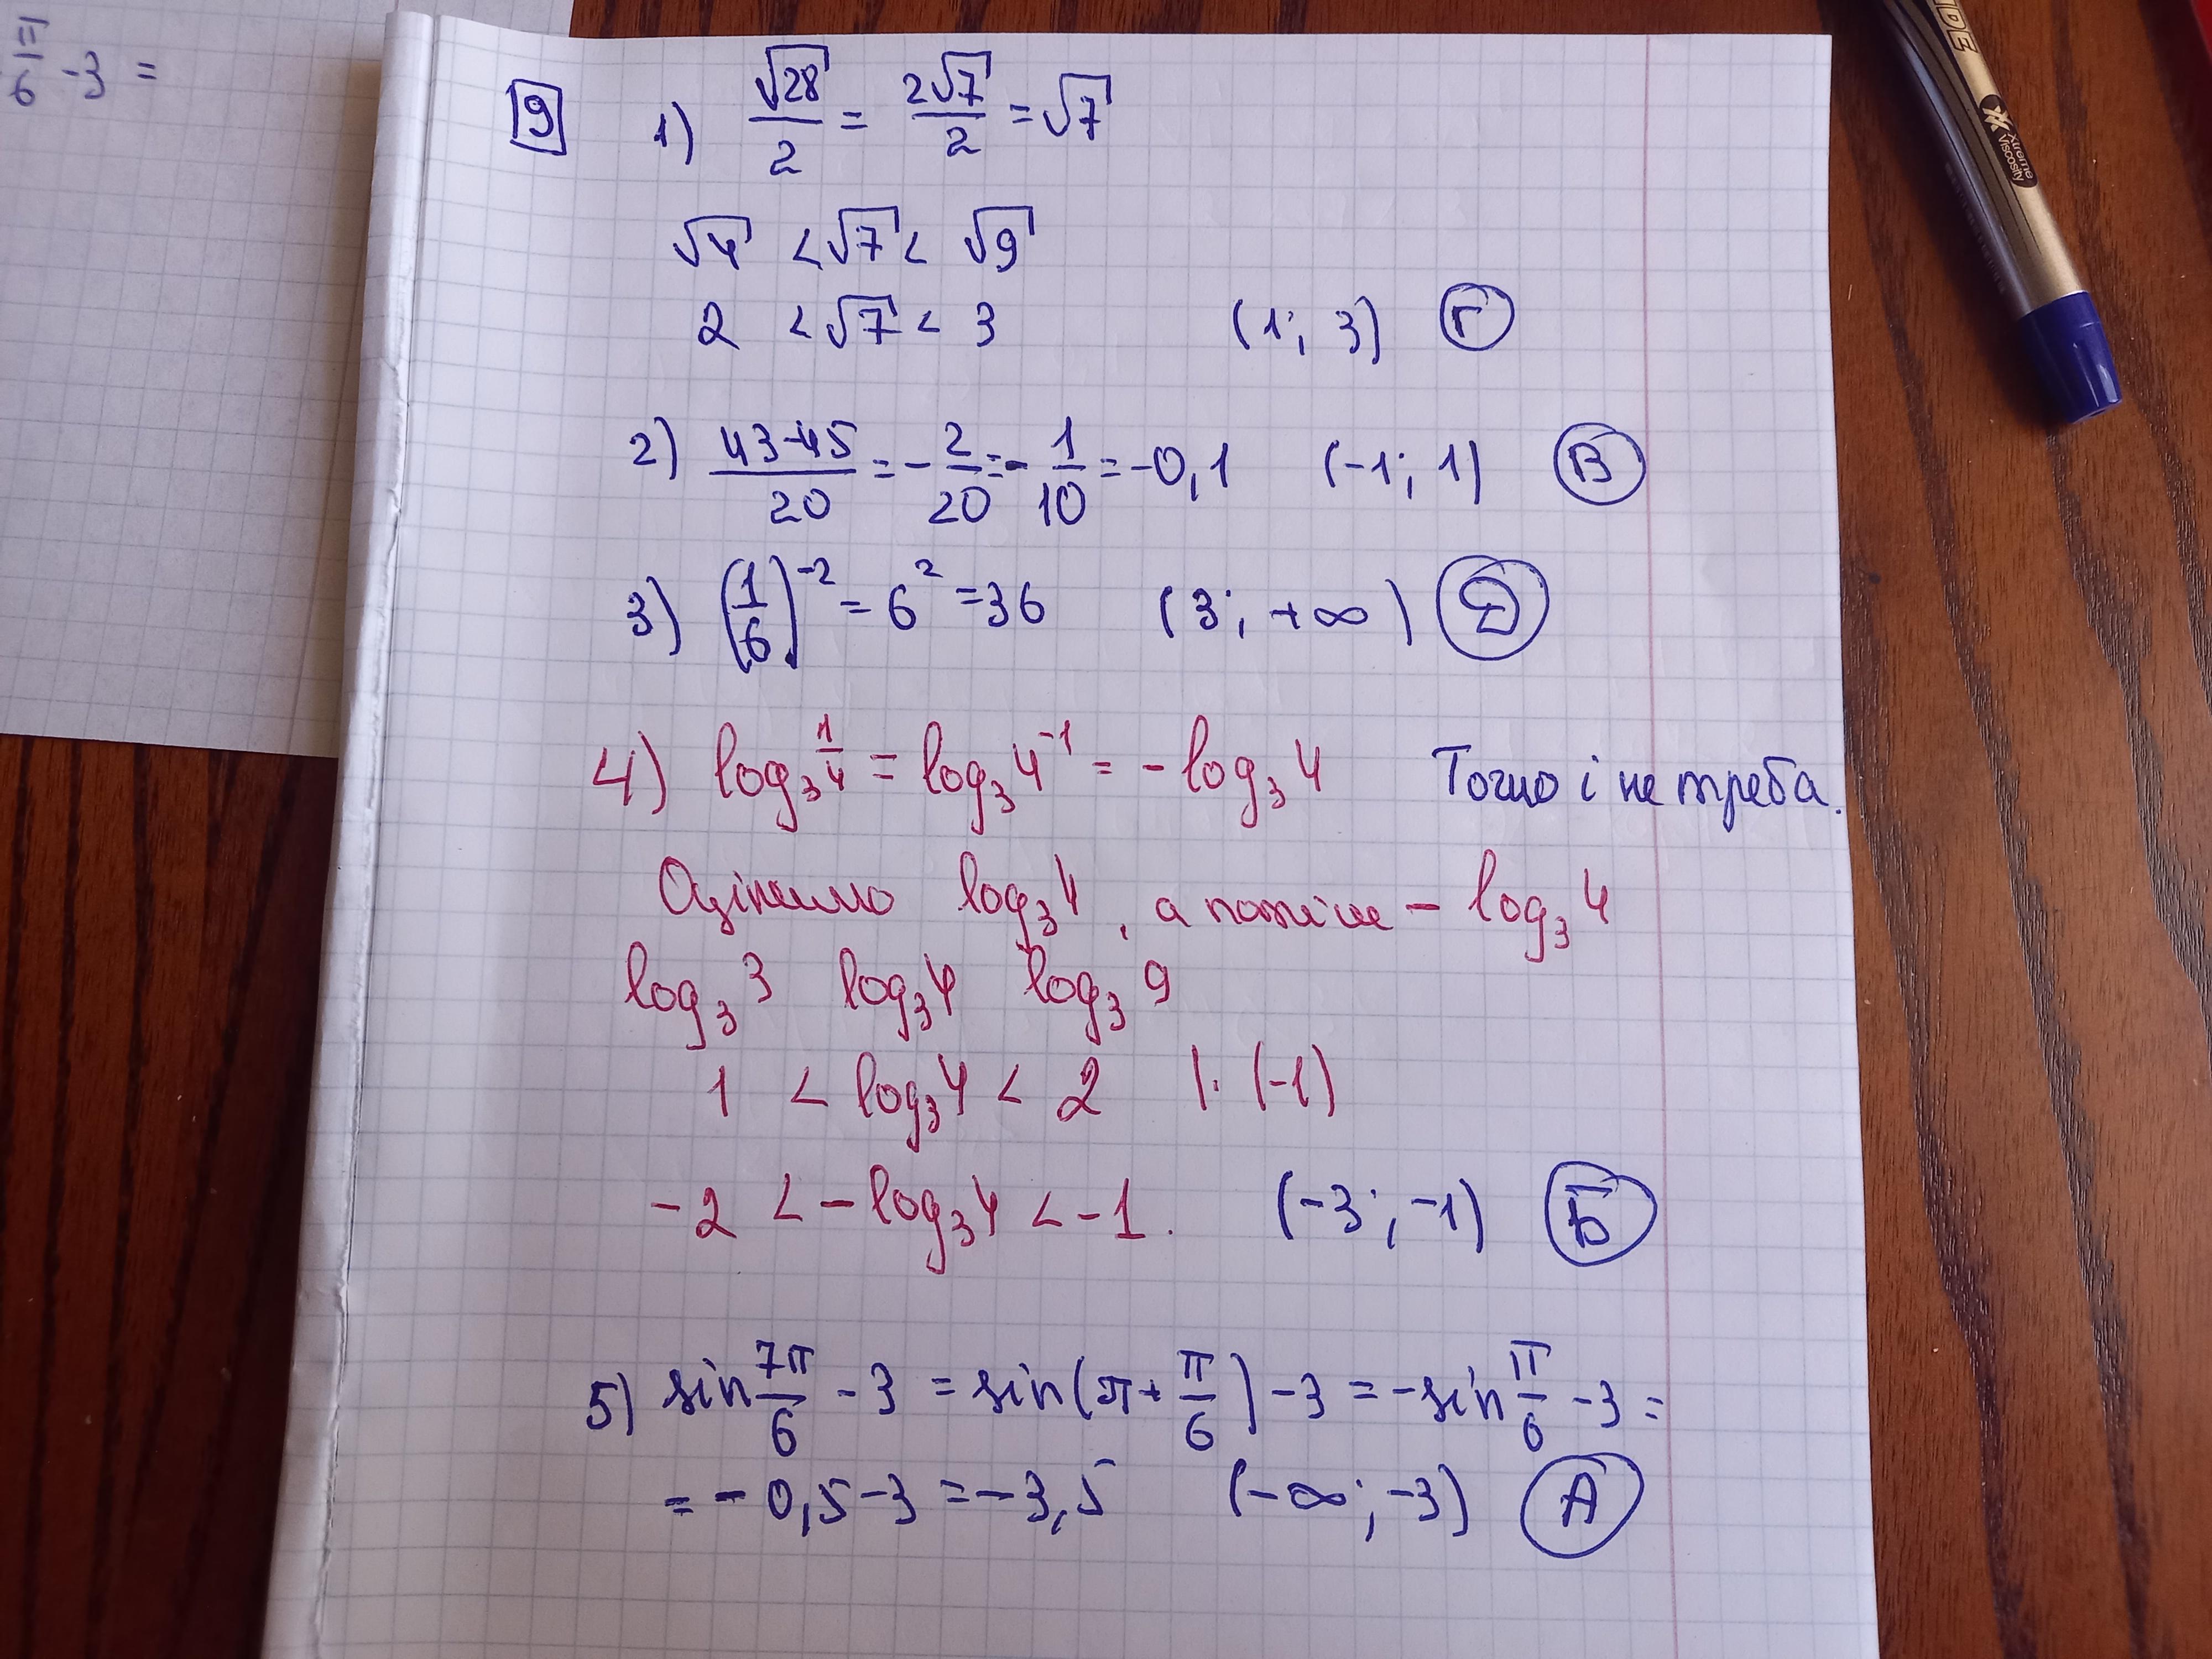 π/6 -3 =
9 1) √28/2 = 2√7/2 = √7
√4 < √7 < √9
2 < √7 < 3 (1; 3) Г
2) 43-45/20 = -2/20 = -1/10 = -0,1 (-1; 1) В
3) (1/6)⁻² = 6² = 36 (3; +∞) Д
4) log₃ 1/4 = log₃ 4⁻¹ = - log₃ 4 Точно і не треба.
Оцінимо log₃ 4, а потім - log₃ 4
log₃ 3 log₃ 4 log₃ 9
1 < log₃ 4 < 2 |· (-1)
-2 < - log₃ 4 < -1. (-3; -1) Б
5) sin 7π/6 - 3 = sin(π + π/6) - 3 = - sin π/6 - 3 =
= - 0,5 - 3 = - 3,5 (-∞; -3) А
Xtreme
Viscosity